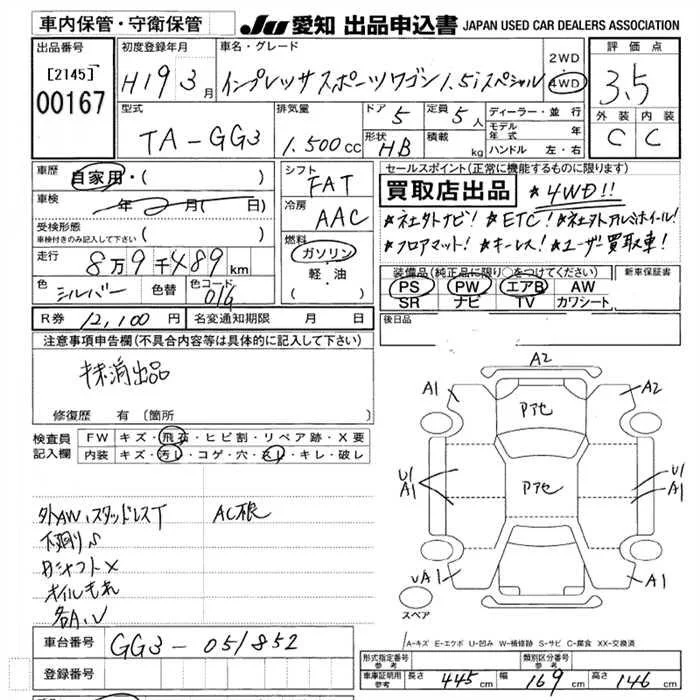 車内保管・守衛保管
JU 愛知 出品申込書 JAPAN USED CAR DEALERS ASSOCIATION
出品番号
[2145]
00167
初度登録年月
H19 3月
車名・グレード
インプレッサスポーツワゴン 1.5iスペシャル
2WD
4WD
評価点
3.5
外装 内装
C C
型式
TA-GG3
排気量
1.500cc
ドア 5
定員 5人
形状 HB
積載 kg
ディーラー・並行
モデル年式 年
ハンドル 左・右
車歴
自家用・( )
車検
年 2月( 日)
受検形態
車検付きのみ記入して下さい ( )
走行
8万9千489km
色
シルバー
色替
色コード
01G
シフト
FAT
冷房
AAC
燃料
ガソリン
軽・油
( )
セールスポイント(正常に機能するものに限ります)
買取店出品 *4WD!!
*社外ナビ! *ETC! *社外アルミホイール!
*フロアマット! *キーレス! *ユーザ買取車!
装備品(純正品に限り○をつけてください)
PS PW エアB AW
SR ナビ TV カワシート
新車保証書
R券 12,100円
名変通知期限 月 日
後日品
注意事項申告欄(不具合内容等は具体的に記入して下さい)
抹消出品
修復歴 有 〔箇所
検査員
記入欄
FW キズ・飛石・ヒビ割・リペア跡・X要
内装 キズ・汚レ・コゲ・穴・スレ・キレ・破レ
外AW、スタッドレスT
AC根
下廻りS
オイルもれ
各A、U
A2
A1
A2
Pアセ
Pアセ
U1
A1
U1
A1
UA1
A1
スペア
A-キズ E-エクボ U-凹み W-補修跡 S-サビ C-腐食 XX-交換済
車台番号
GG3-051852
登録番号
形式指定番号
参考
類別区分番号
参考
車庫証明用
参考
長さ 445cm
幅 169cm
高さ 146cm